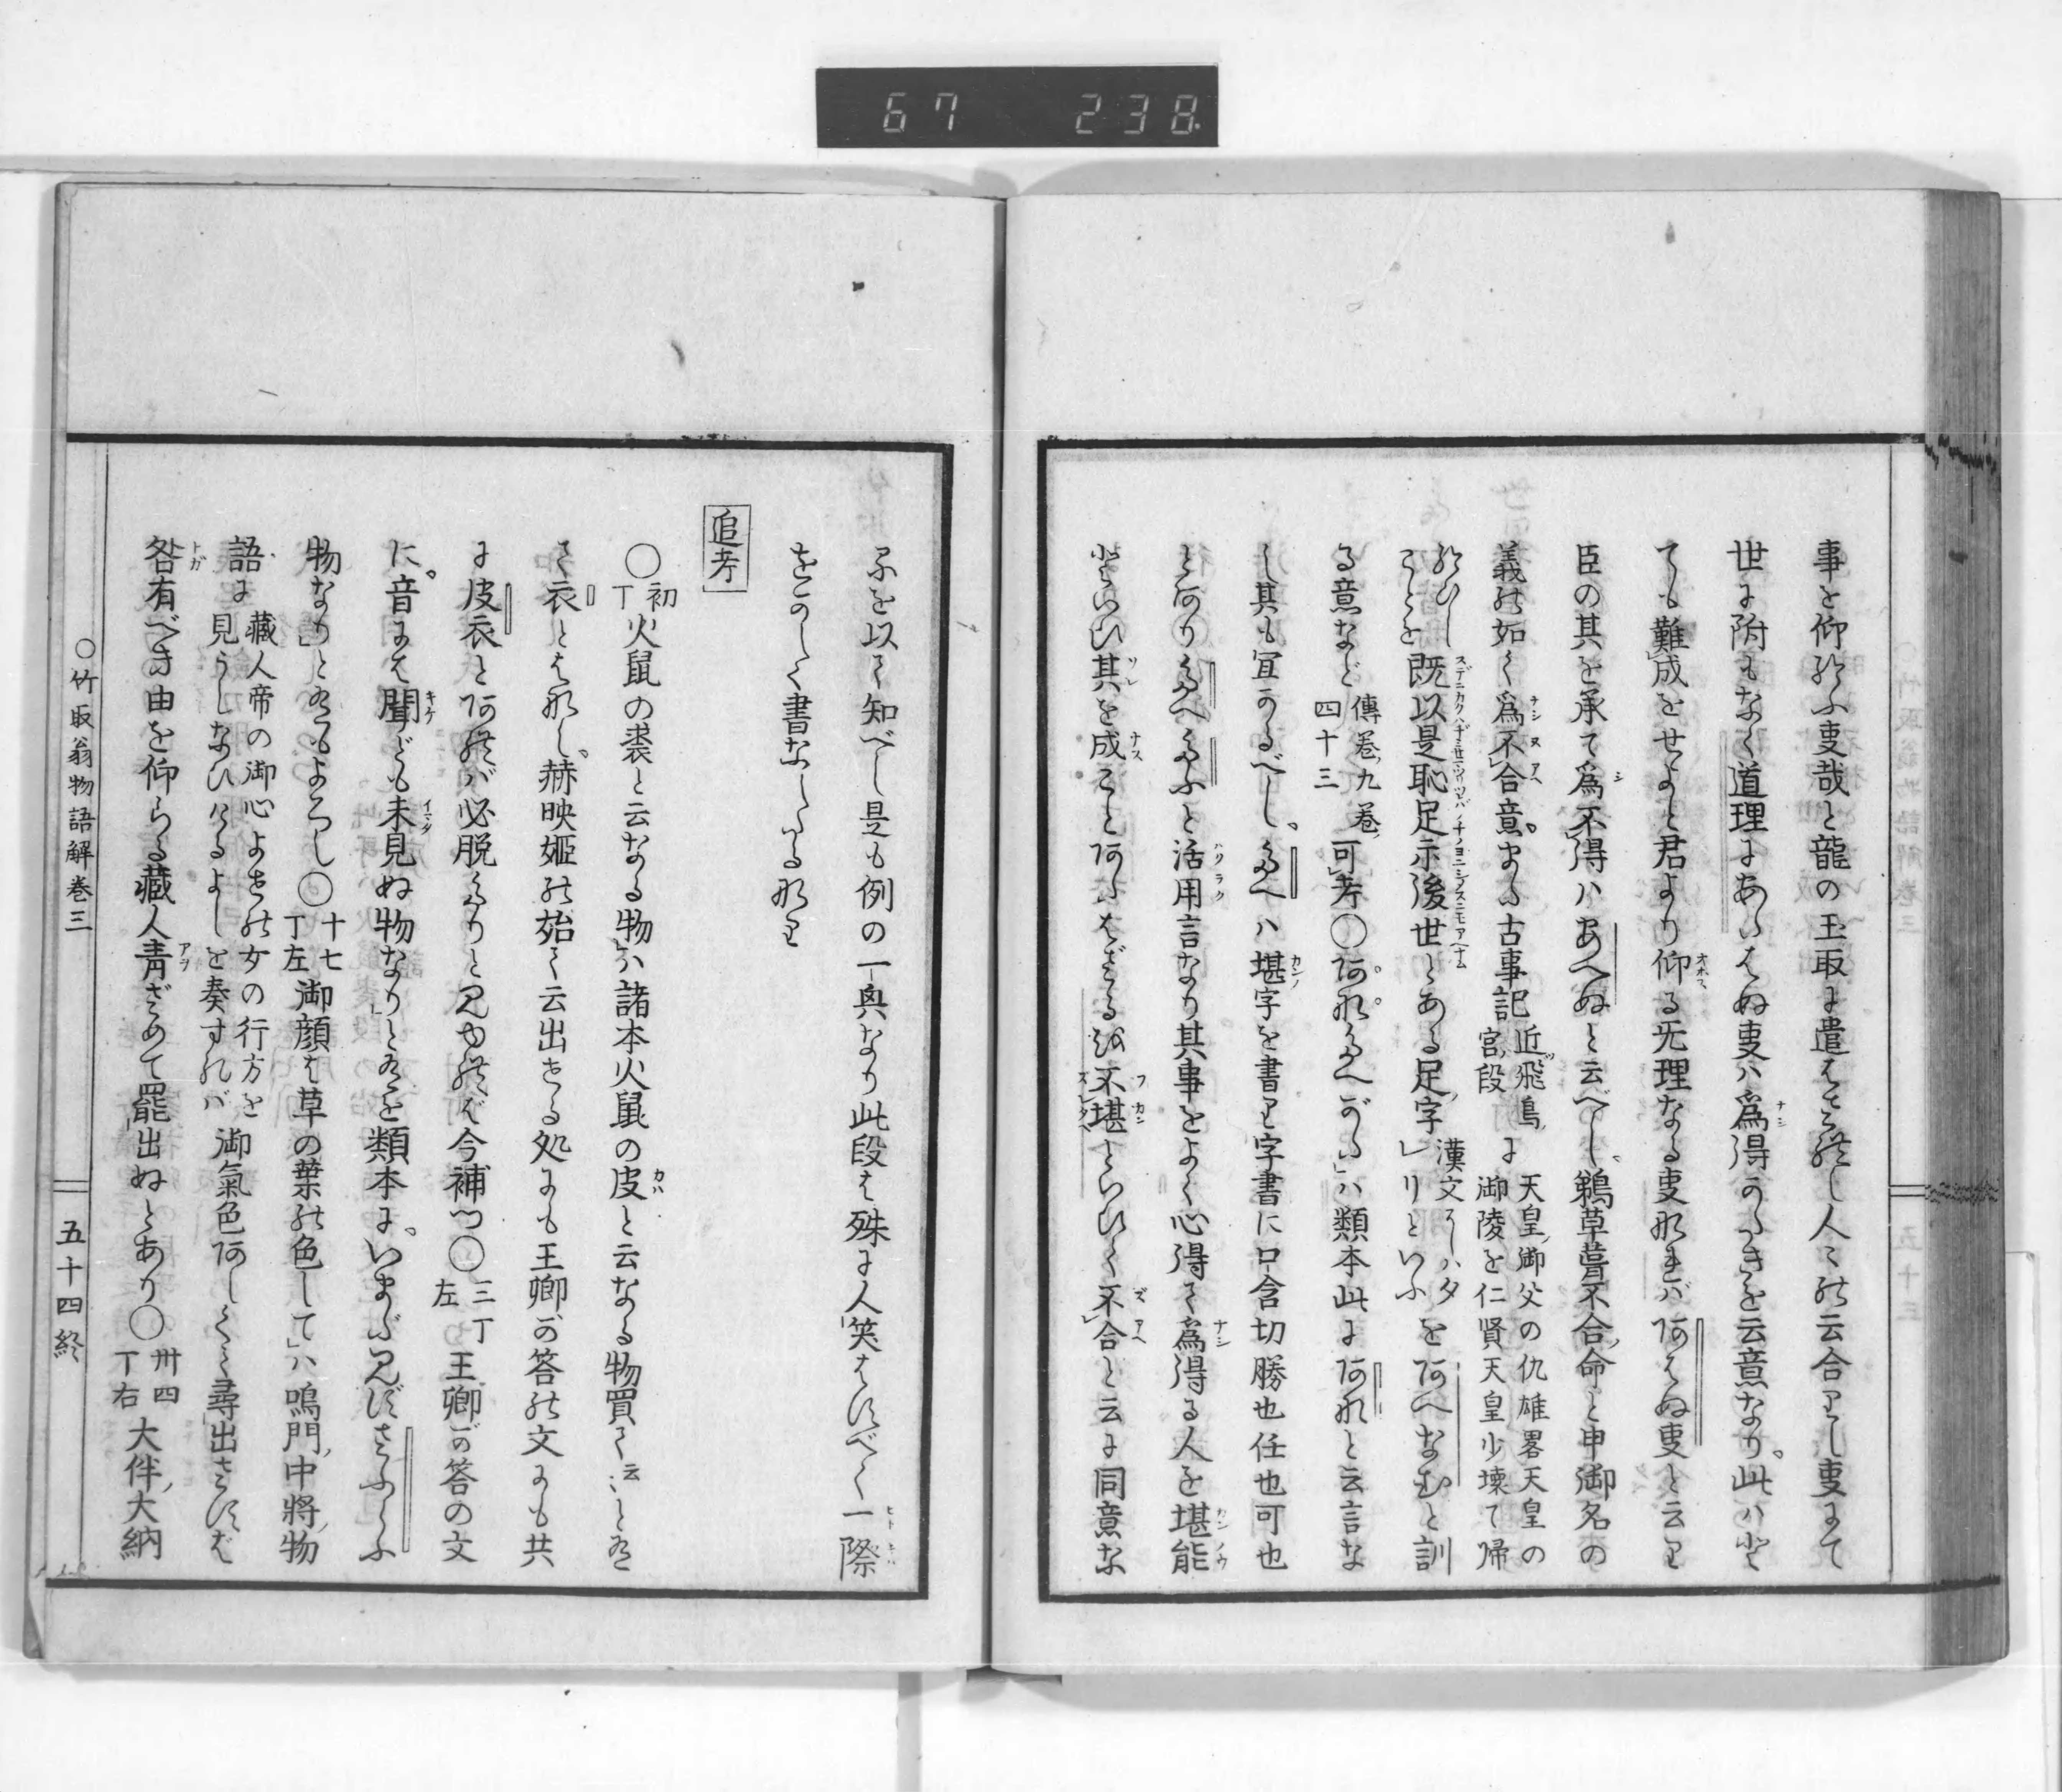 67 238
事を仰給ふ叓哉と龍の玉取に遣はされし人々の云合りし叓にて
世に附もなく道理にあたはぬ叓ハ爲得のたきを云意なり。此ハ
ても難成をせよと君より仰る无理なる叓なれバあはぬ叓と云り
臣の其を承て爲不得ハあへぬと云べし、鵜草葺不合命と申御名の
義の如く爲不合意。また古事記近飛鳥宮段に天皇御父の仇雄畧天皇の御陵を仁賢天皇少壊て帰
給ひしことを既以是恥足示後世とある足字漢文をあへなむと訓
る意など傳九巻四十三可考〇あなたへがたハ類本此にあなと云言な
し其も宜かるべし。たへハ堪字を書り字書に口含切勝也任也可也
とありたへたふと活用言なり其事をよく心得て爲得る人を堪能
といひ其を成ことあたはざるを不堪といひて不合と云に同意な
るを以て知べし是も例の一興なり此段は殊に人笑はすべく一際
をかしく書なしたるなり
追考
〇初丁火鼠の裘と云なる物ハ諸本火鼠の皮と云なる物買て云々とあ
て衣とはなし。赫映姫の始て云出せる処にも王卿の答の文にも共
に皮衣とあれバ必脱たりと見ゆれば今補つ〇三丁左王卿の答の文
に。音には聞ども未見ぬ物なりとあるを類本に。いまだ見ずさふらふ
物なりとあるもよろし〇十七丁左御顔は草の葉の色してハ鳴門中將物
語に藏人帝の御心よせの女の行方を見うしなひけるよしを奏すれバ御氣色あしくて尋出さずば
咎有べき由を仰らる藏人青ざめて罷出ぬとあり〇卅四丁右大伴大納
〇竹取翁物語解巻三
五十四終